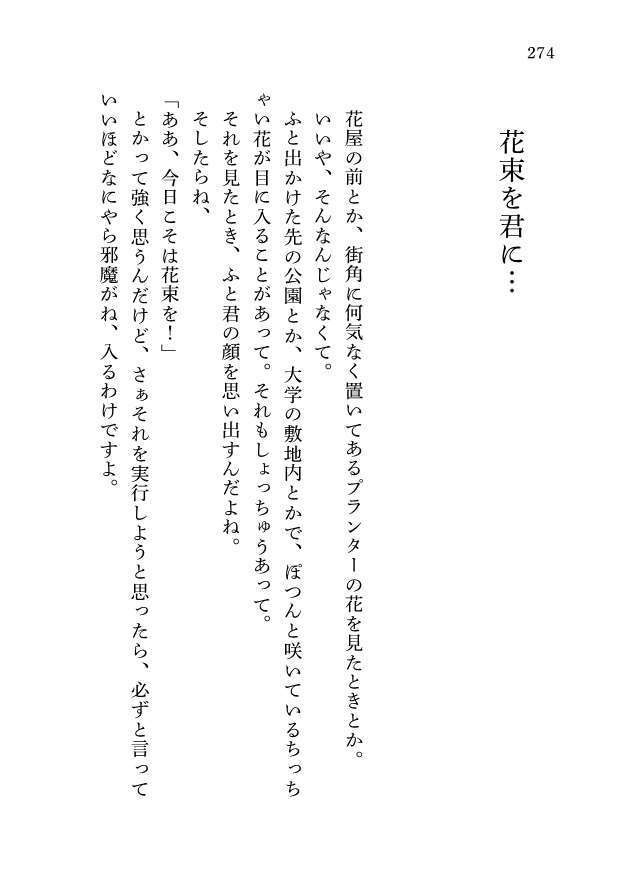 274
花束を君に…
花屋の前とか、街角に何気なく置いてあるプランターの花を見たときとか。
いいや、そんなんじゃなくて。
ふと出かけた先の公園とか、大学の敷地内とかで、ぽつんと咲いているちっち
ゃい花が目に入ることがあって。それもしょっちゅうあって。
それを見たとき、ふと君の顔を思い出すんだよね。
そしたらね、
「ああ、今日こそは花束を！」
とかって強く思うんだけど、さぁそれを実行しようと思ったら、必ずと言って
いいほどなにやら邪魔がね、入るわけですよ。